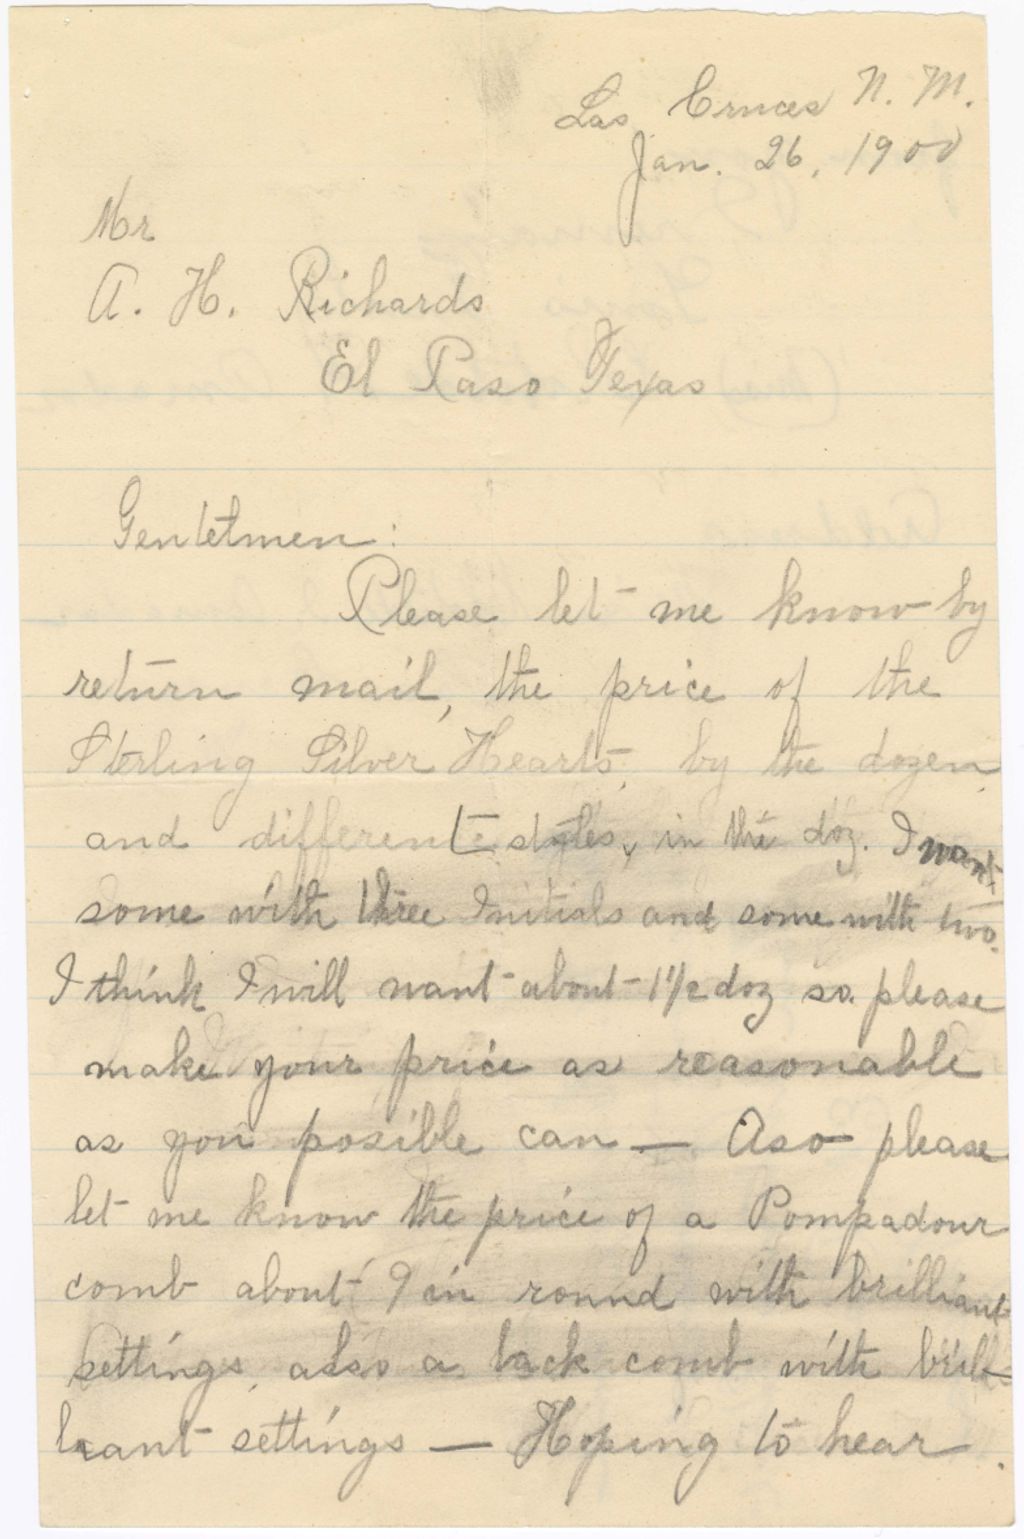 Las Cruces N. M.
Jan. 26, 1900
Mr
A. H. Richards
El Paso Texas
Gentetmen:
Please let me know by
return mail, the price of the
Sterling Silver Hearts, by the dozen,
and different styles, in the doz. I want
some with three Initials and some with two.
I think I will want about 1 1/2 doz so. please
make your price as reasonable
as you posible can — Aso please
let me know the price of a Pompadour
comb about 9 in round with brilliant
settings, also a back comb with bril-
leant settings — Hoping to hear